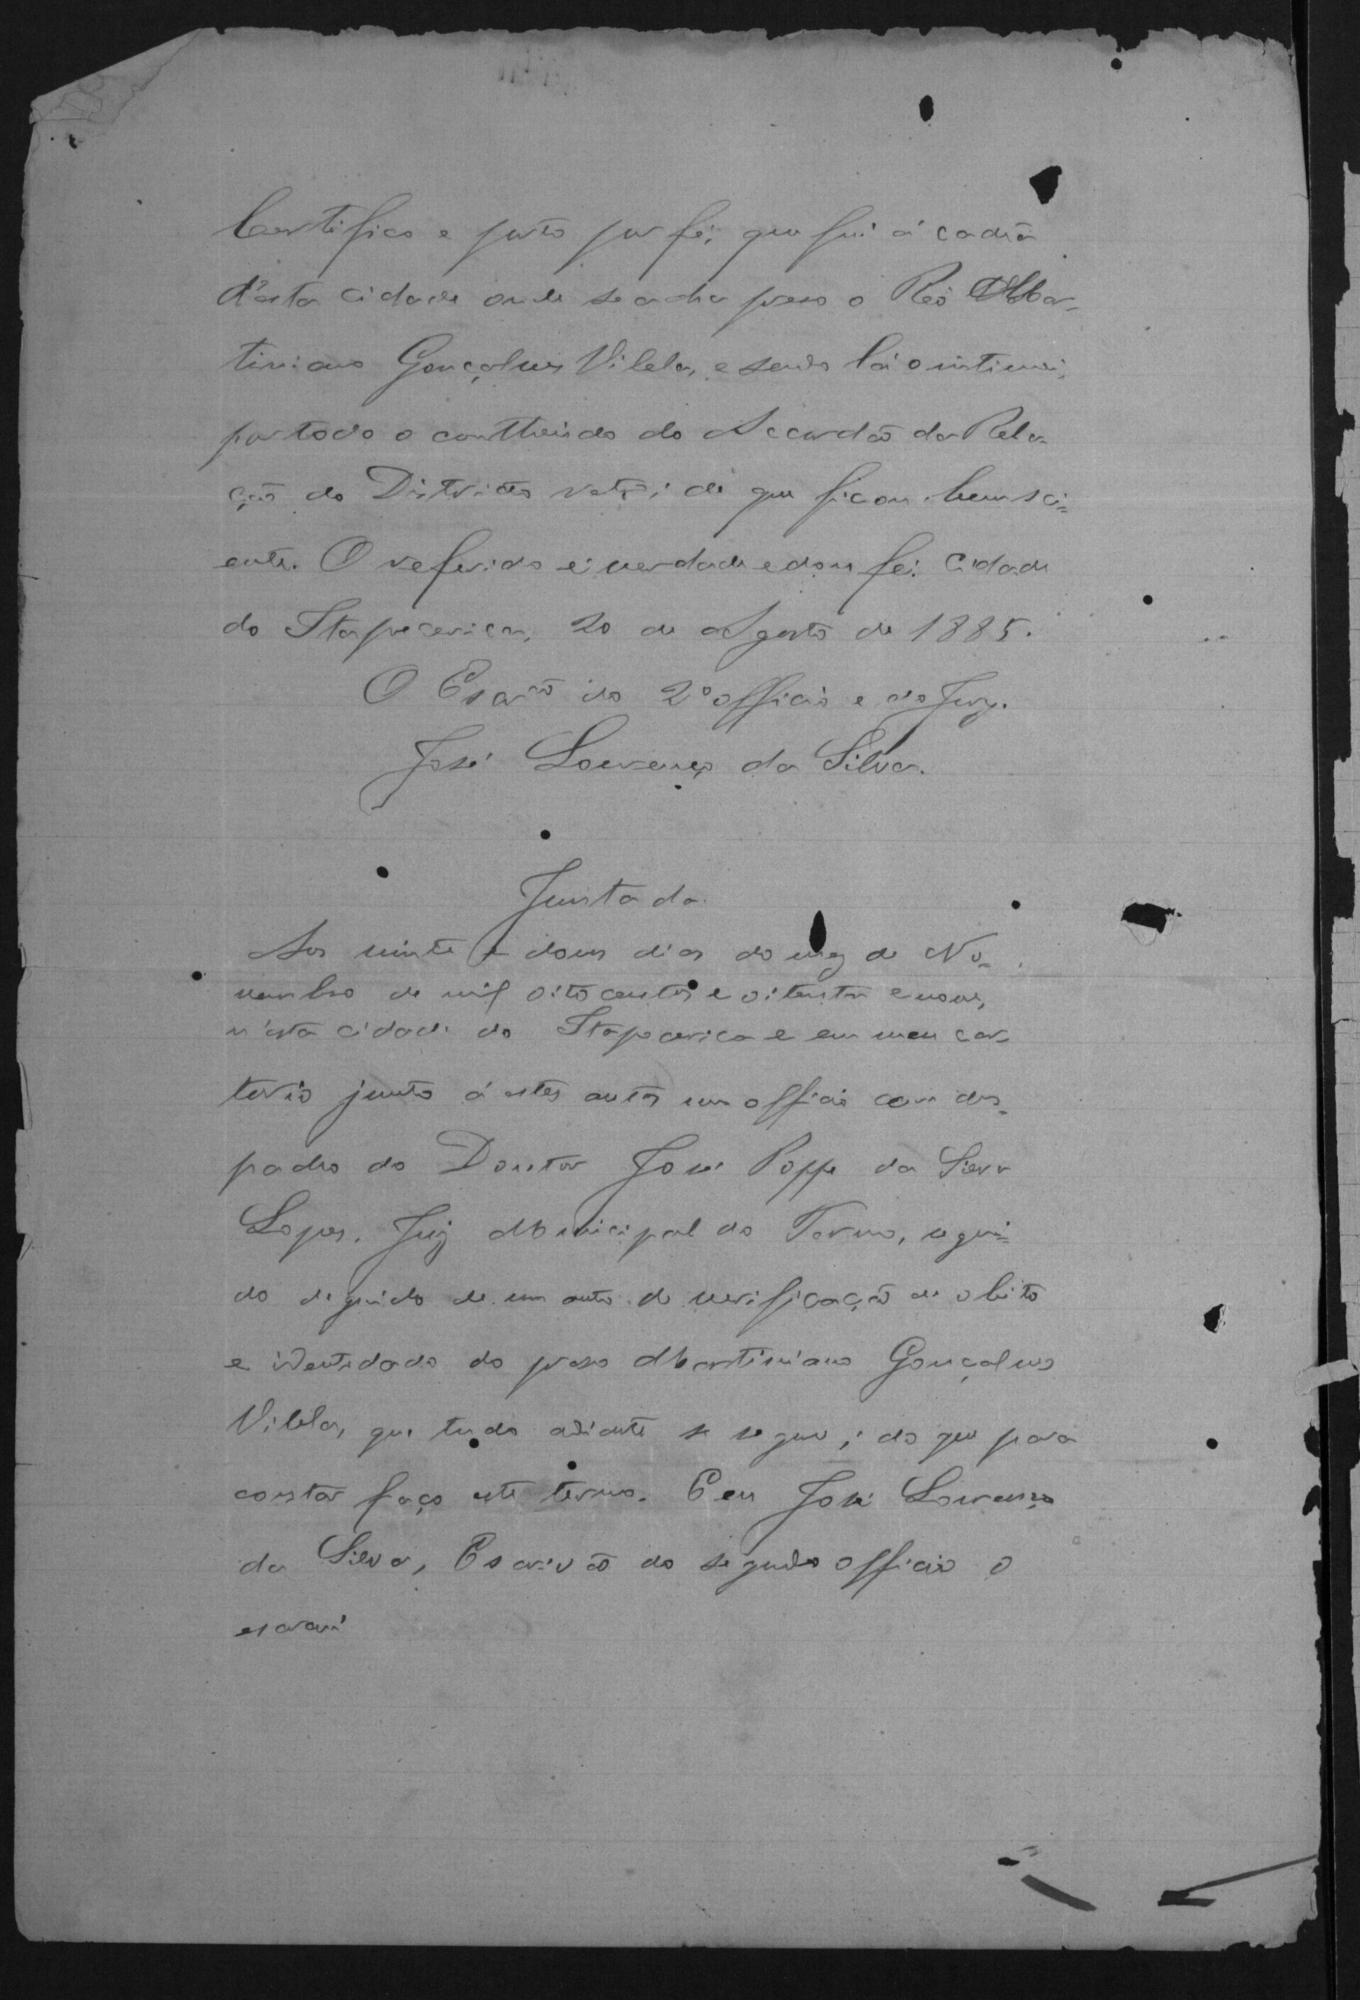 Certifico e porto por fé, que fui á cadeia
d'esta cidade onde se acha preso o Réo Mar-
tiniano Gonçalves Vilela, e sendo lá o intimei,
por todo o contheudo do Accordão da Rela-
ção do Districto retro; de que ficou bem sci=
ente. O referido é verdade e dou fé. Cidade
do Itapecerica, 20 de Agosto de 1885.
O Escrão do 2º officio e do Jury.
José Lourenço da Silva.
Juntada.
Aos vinte e dous dias do mez de No-
vembro de mil oitocentos e oitenta e nove,
n'esta cidade do Itapecerica e em meu car-
torio junto á estes autos um officio com des-
pacho do Doutor José Poppe da Silva
Lopes, Juiz Municipal do Termo, segui=
do de um auto de verificação de obito
e identidade do preso Martiniano Gonçalves
Vilela, que tudo adiante se segue; do que para
constar faço este termo. E eu José Lourenço
da Silva, Escrivão do segundo officio o
escrevi